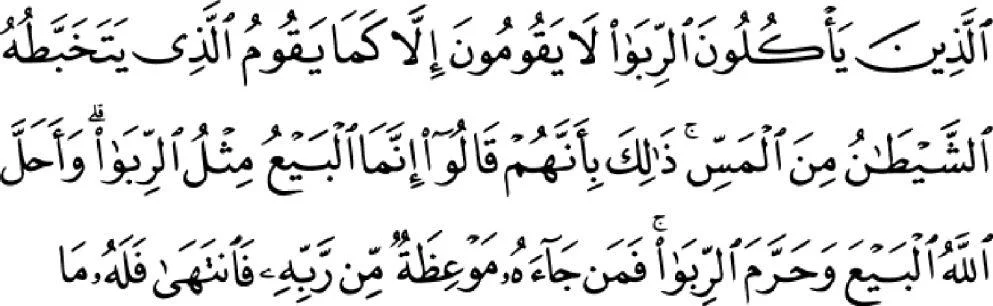 ٱلَّذِينَ يَأْكُلُونَ ٱلرِّبَوٰا۟ لَا يَقُومُونَ إِلَّا كَمَا يَقُومُ ٱلَّذِى يَتَخَبَّطُهُ
ٱلشَّيْطَـٰنُ مِنَ ٱلْمَسِّ ۚ ذَٰلِكَ بِأَنَّهُمْ قَالُوٓا۟ إِنَّمَا ٱلْبَيْعُ مِثْلُ ٱلرِّبَوٰا۟ ۗ وَأَحَلَّ
ٱللَّهُ ٱلْبَيْعَ وَحَرَّمَ ٱلرِّبَوٰا۟ ۚ فَمَن جَآءَهُۥ مَوْعِظَةٌ مِّن رَّبِّهِۦ فَٱنتَهَىٰ فَلَهُۥ مَا